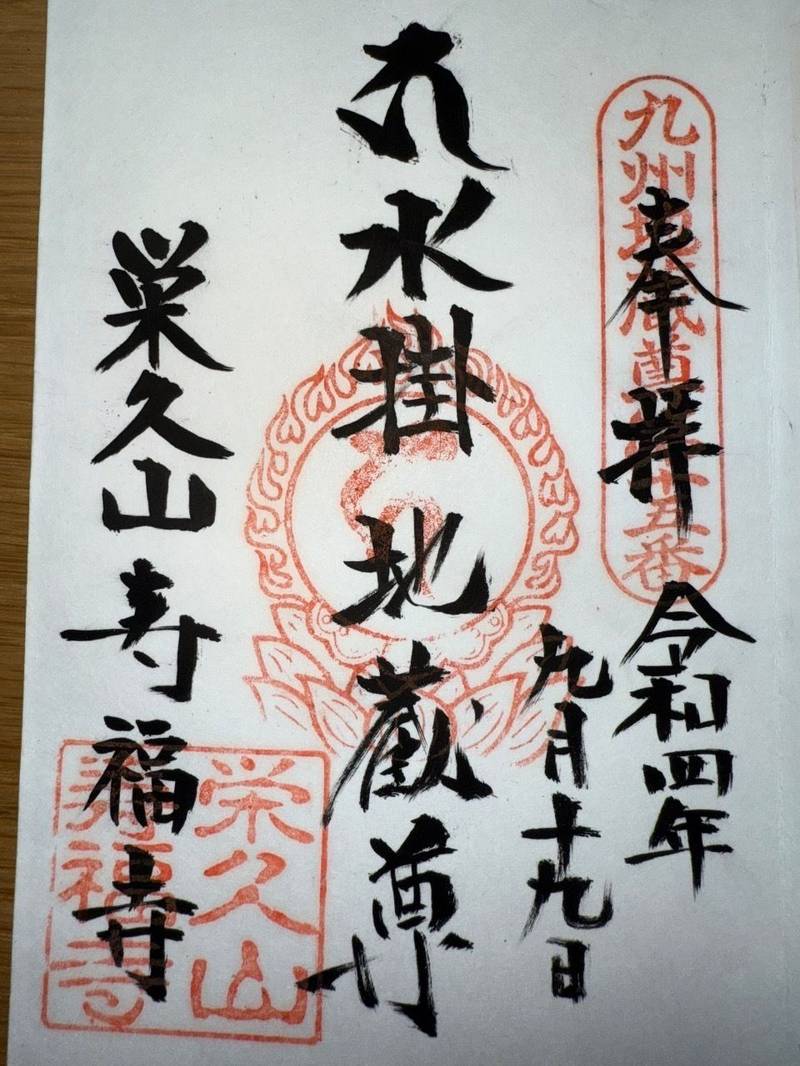 九州地蔵尊十五番
奉拝 令和四年
九月十九日
水掛地蔵尊
栄久山寿福寺
栄久山
寿福寺